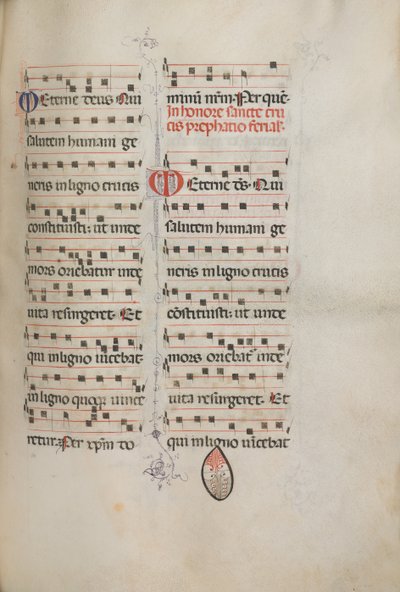 Eterne deus Qui
salutem humani ge
neris in ligno crucis
constituisti: ut unde
mors oriebatur inde
uita resurgeret. Et
qui in ligno uincebat
in ligno quoqz uince
retur. Per xp̄m do
minum nr̄m. Per quē.
In honore sancte cru
cis prephatio ferial.
Eterne d̄s. Qui
salutem humani ge
neris in ligno crucis
cōstituisti: ut unde
mors oriebat inde
uita resurgeret. Et
qui in ligno uīcebat